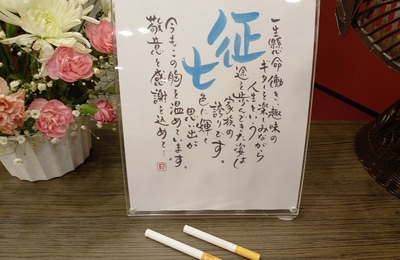 一生懸命働き、趣味の
ギターを楽しみながら
人生という
征 途を歩んできた姿は
家族の
誇りです。
七 色に輝く
思い出が
今もこの胸を温めています。
敬意と感謝を込めて…